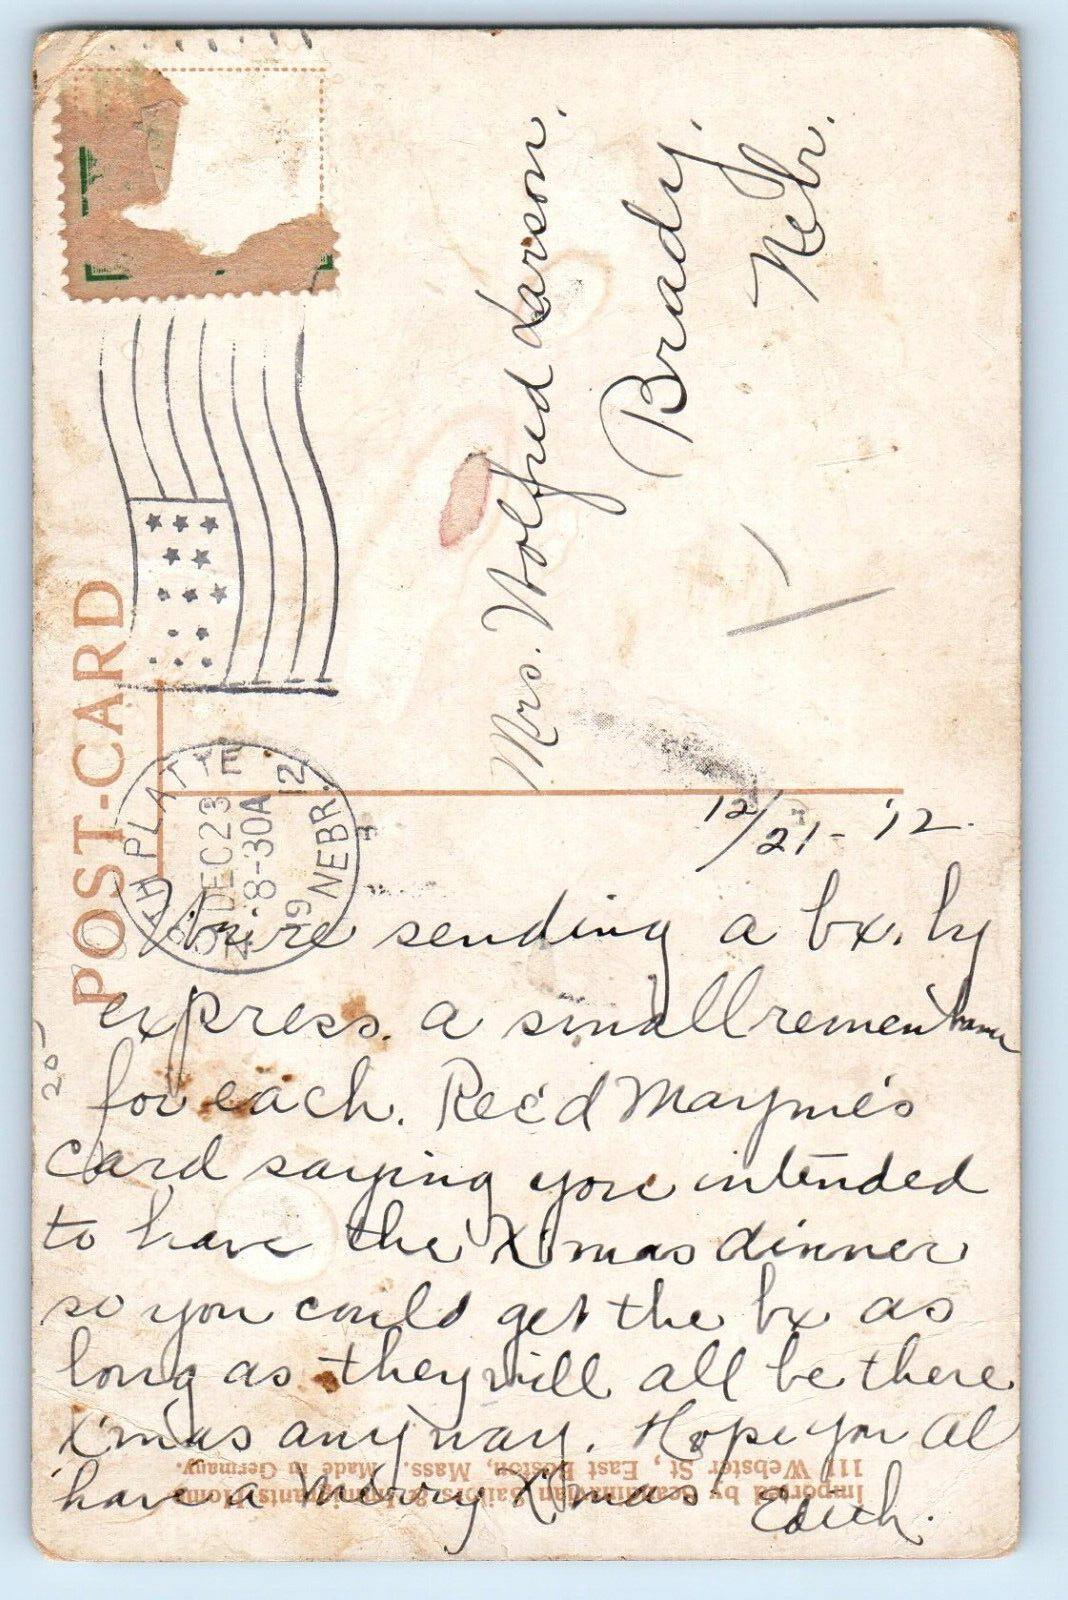 POST-CARD
NORTH PLATTE
DEC 23
8-30A
12
NEBR.
Mrs. Wolfred Larson.
Brady,
Nebr.
12/21-'12.
We're sending a bx. by
express. a small remembrance
for each. Rec'd Mayme's
card saying you intended
to have the X'mas dinner
so you could get the bx as
long as they will all be there
X'mas anyway. Hope you al
have a merry X'mas
Edith.
20-
Imported by Scandinavian Sailors & Immigrants Home
111 Webster St, East Boston, Mass. Made in Germany.